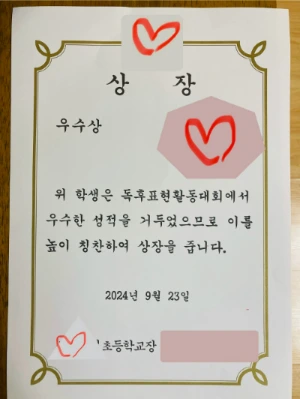 상 장
우수상
위 학생은 독후표현활동대회에서
우수한 성적을 거두었으므로 이를
높이 칭찬하여 상장을 줍니다.
2024년 9월 23일
초등학교장